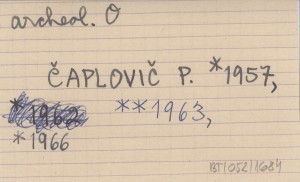 archeol. O
ČAPLOVIČ P. *1957,
*1962 **1963,
*1966
BT/052/1684